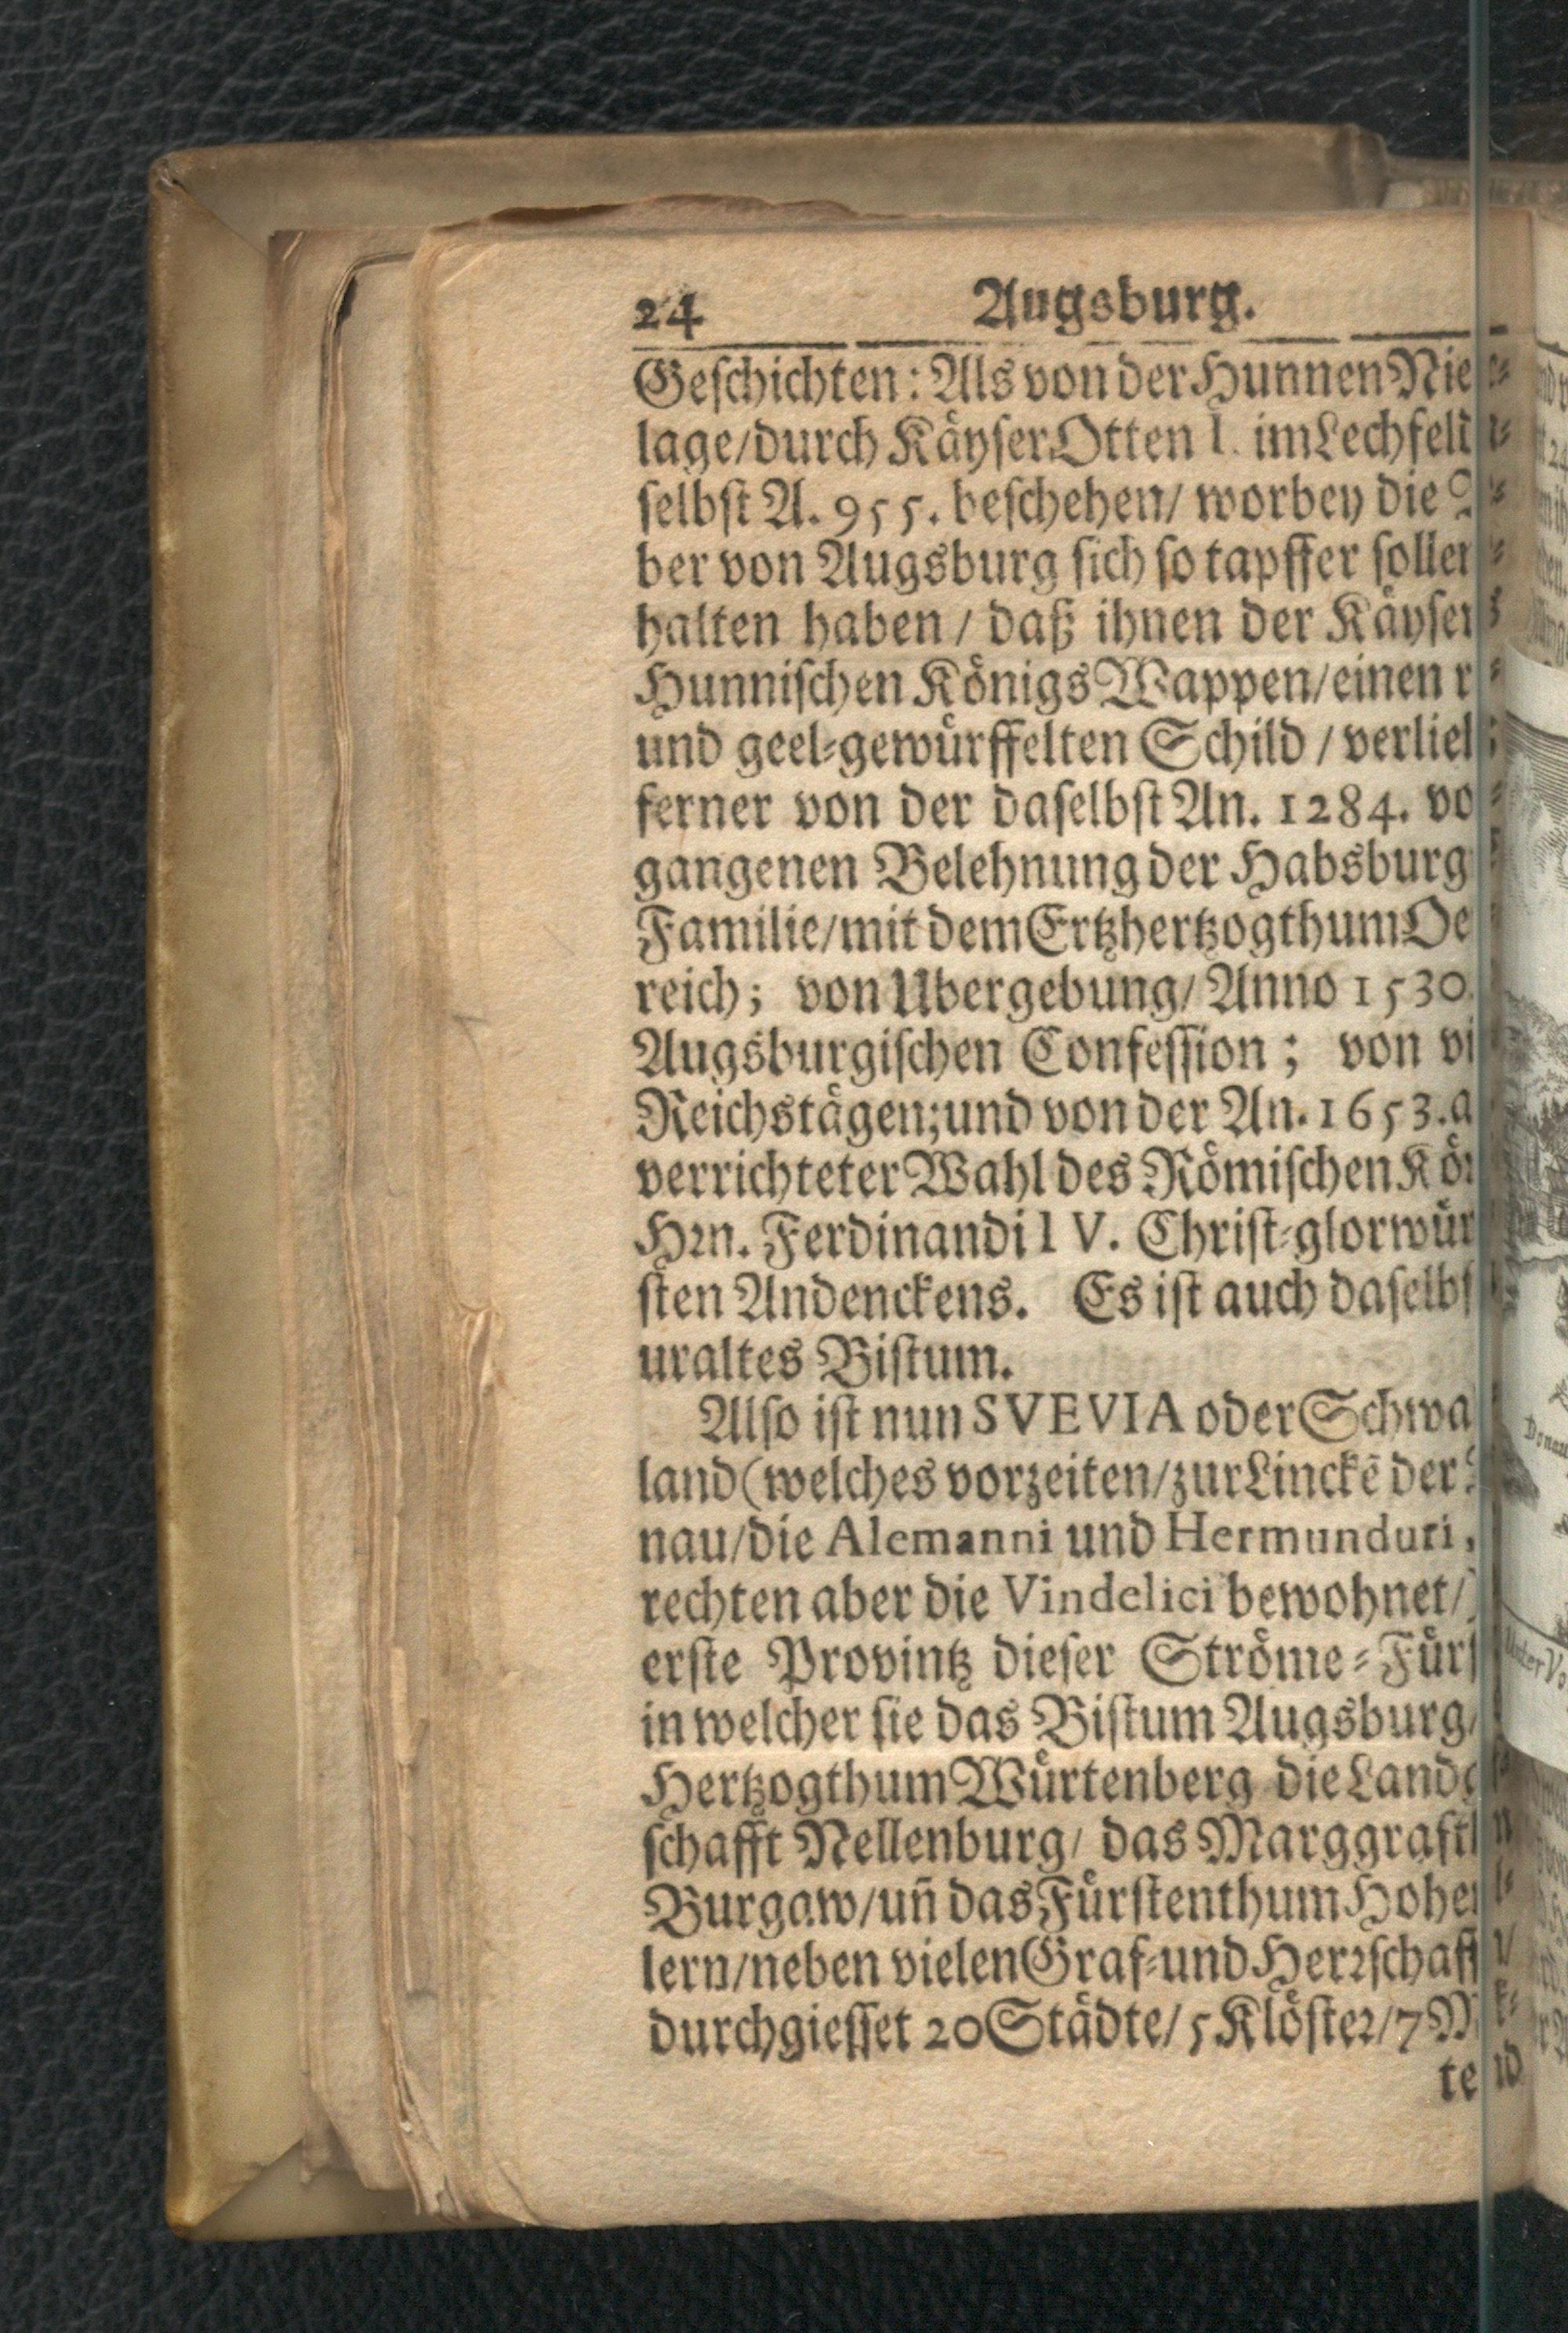 24 Augsburg.
Geschichten: Als von der Hunnen Nie
lage/durch Käyser Otten I. im Lechfeld
selbst A. 955. beschehen/ worbey die
ber von Augsburg sich so tapffer sollen
halten haben / daß ihnen der Käyser
Hunnischen Königs Wappen/einen r
und geel-gewürffelten Schild / verlieh
ferner von der daselbst An. 1284. vo
gangenen Belehnung der Habsburg
Familie/mit dem Ertzhertzogthum Oe
reich; von Ubergebung/ Anno 1530.
Augsburgischen Confession; von vi
Reichstägen; und von der An. 1653. a
verrichteter Wahl des Römischen Kön
Hrn. Ferdinandi IV. Christ-glorwür
sten Andenckens. Es ist auch daselbs
uraltes Bistum.
Also ist nun SVEVIA oder Schwa
land (welches vorzeiten/zur Linckē der
nau/die Alemanni und Hermunduri,
rechten aber die Vindelici bewohnet/
erste Provintz dieser Ströme-Fürs
in welcher sie das Bistum Augsburg/
Hertzogthum Würtenberg die Landg
schafft Nellenburg/ das Marggrafth
Burgaw/uñ das Fürstenthum Hohen
lern/neben vielen Graf-und Herrschaft
durchgiesset 20 Städte/ 5 Klöster/ 7 M
te